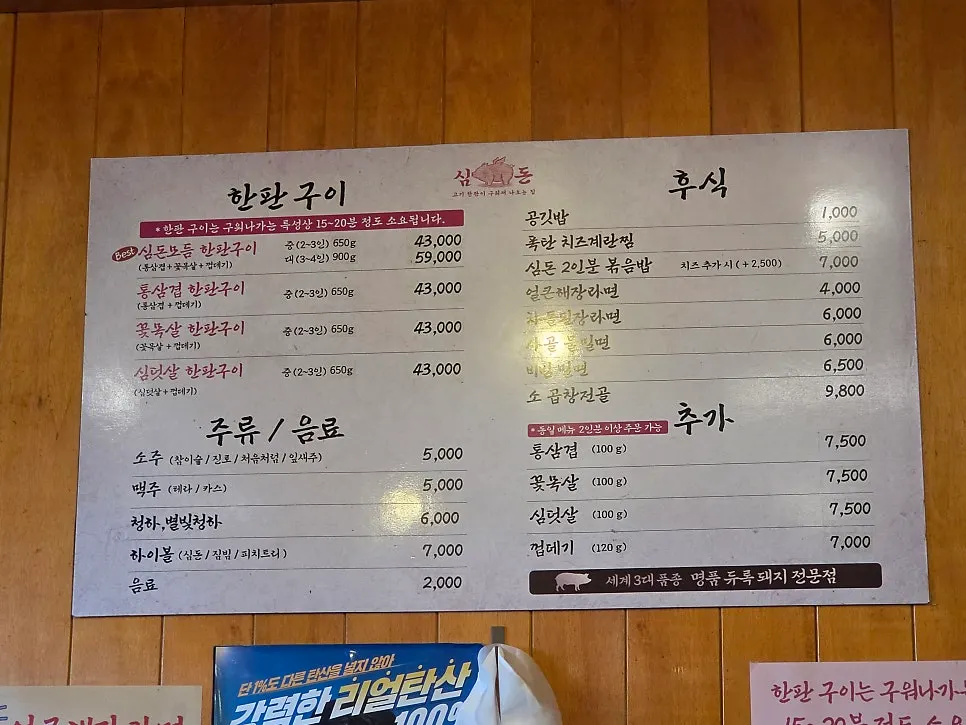 심돈
고기 한판이 구워져 나오는 집
한판 구이
* 한판 구이는 구워나가는 특성상 15~20분 정도 소요됩니다.
Best 심돈모듬 한판구이 중(2~3인) 650g 43,000
(통삼겹+꽃목살+껍데기) 대(3~4인) 900g 59,000
통삼겹 한판구이 중(2~3인) 650g 43,000
(통삼겹+껍데기)
꽃목살 한판구이 중(2~3인) 650g 43,000
(꽃목살+껍데기)
심덧살 한판구이 중(2~3인) 650g 43,000
(심덧살+껍데기)
주류 / 음료
소주 (참이슬/진로/처음처럼/잎새주) 5,000
맥주 (테라/카스) 5,000
청하,별빛청하 6,000
하이볼 (심돈/짐빔/피치트리) 7,000
음료 2,000
후식
공깃밥 1,000
폭탄 치즈계란찜 5,000
심돈 2인분 볶음밥 치즈 추가 시 (+2,500) 7,000
얼큰해장라면 4,000
차돌된장라면 6,000
사골 물밀면 6,000
비빔밀면 6,500
소 곱창전골 9,800
* 동일 메뉴 2인분 이상 주문 가능 추가
통삼겹 (100g) 7,500
꽃목살 (100g) 7,500
심덧살 (100g) 7,500
껍데기 (120g) 7,000
세계 3대 품종 명품 듀록 돼지 전문점
단 1%도 다른 탄산을 넣지 않아
강력한 리얼탄산
100%
한판 구이는 구워나가는
15~20분 정도 소